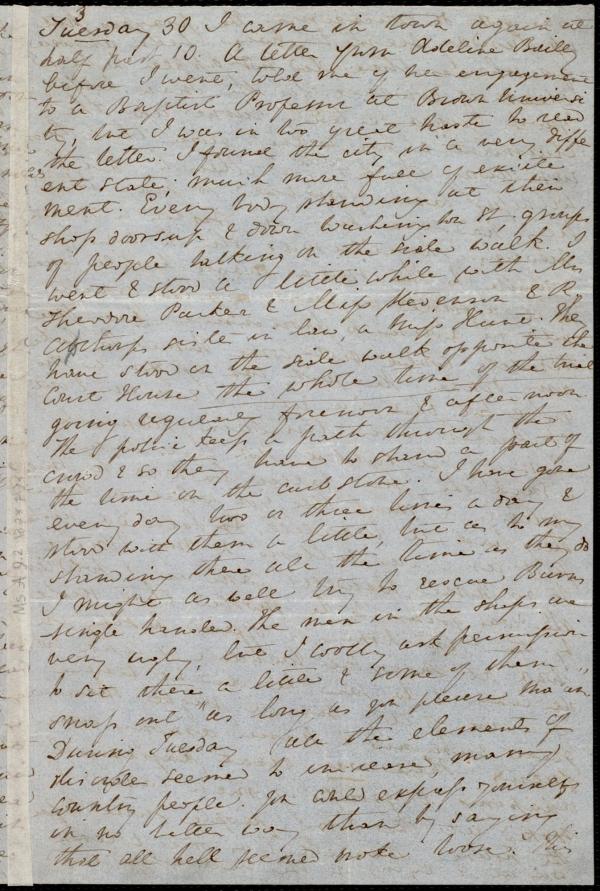 3
Tuesday 30 I came in town again at
half past 10. A letter from Adeline Bailey
before I went, told me of her engagement
to a Baptist Professor at Brown Universi
ty, but I was in too great haste to read
the letter. I found the city, in a very diffe
ent state; much more full of excite
ment. Every body standing at their
shop doors up & down Washington St. groups
of people talking on the side walk. I
went & stood a little while with Mrs
Theodore Parker & Miss Stevenson & R.
Apthorps sister in law, a Miss Hunt. The
have stood on the side walk opposite the
Court House the whole time of the trial
going regularly forenoon & afternoon
The police keep a path through the
crowd & so they have to stand a part of
the time on the curb stone. I have gone
every day two or three times a day &
stood with them a little, but as to my
standing there all the time as they do
I might as well try to rescue Burns
single handed. The men in the shops are
very ugly, but I coolly ask permission
to sit there a little & some of them
snap out "as long as you please ma'am"
During Tuesday all the elements of
discord seemed to increase, many
country people. You could express yourself
in no better way than by saying
that all hell seemed note loose. This
Ms. A. 9. 2